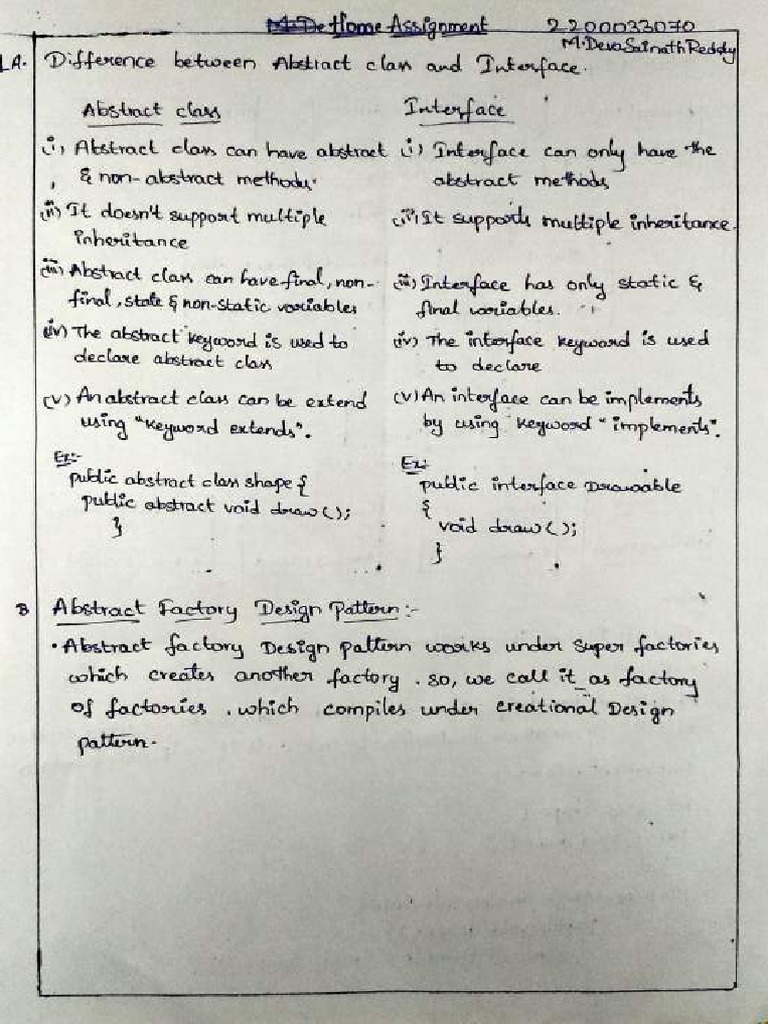 Home Assignment 2200033070
M.DevaSainathReddy
1A. Difference between Abstract class and Interface.
Abstract class
(i) Abstract class can have abstract
& non-abstract methods.
(ii) It doesn't support multiple
inheritance
(iii) Abstract class can have final, non-
final, state & non-static variables
(iv) The abstract keyword is used to
declare abstract class
(v) An abstract class can be extend
using "keyword extends".
Ex:-
public abstract class shape {
public abstract void draw();
}
Interface
(i) Interface can only have the
abstract methods
(ii) It supports multiple inheritance.
(iii) Interface has only static &
final variables.
(iv) The interface keyword is used
to declare
(v) An interface can be implements
by using keyword "implements".
Ex:
public interface Drawable
{
void draw();
}
B Abstract Factory Design Pattern:-
• Abstract factory Design pattern works under super factories
which creates another factory. so, we call it as factory
of factories. which compiles under creational Design
pattern.